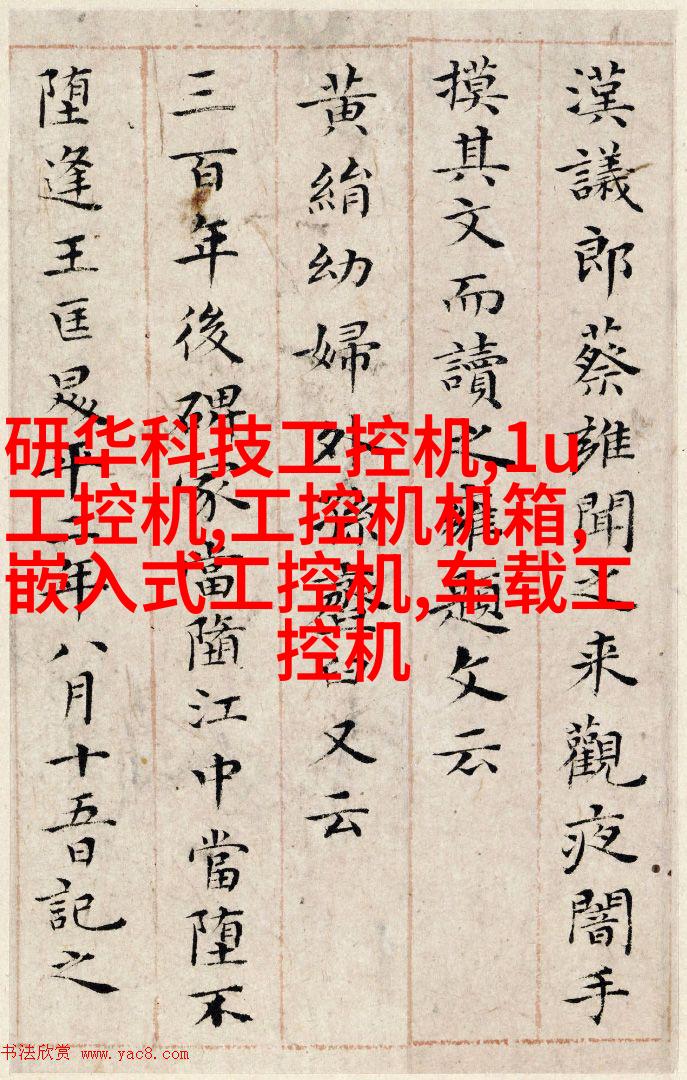 漢議郎蔡雍聞之来觀夜闇手
摸其文而讀之雍題文云
黃絹幼婦外孫又云
三百年後碑冢當墮江中當堕不
堕逢王匡昇平二年八月十五日記之
研华科技工控机,1u
工控机,工控机机箱,
嵌入式工控机,车载工
控机
书法欣赏 www.yac8.com